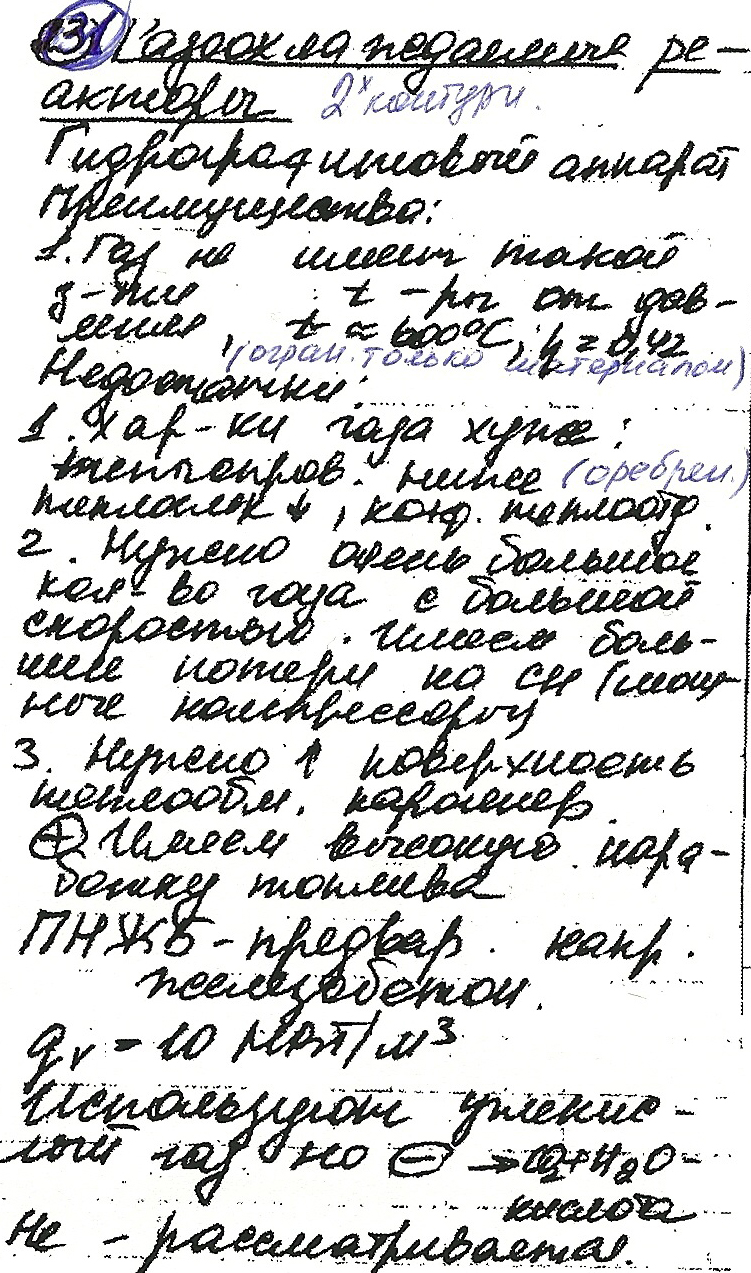 31 Газоохлаждаемые ре-
акторы 2х контурн.
Гидрографитовый аппарат
Преимущества:
1. Газ не имеет такой
з-ти t-ры от дав-
ления, t ≈ 600°C, η = 0,42
(огран. только материалом)
Недостатки:
1. Хар-ки газа хуже:
теплопров. ниже (оребрен.)
теплоемк ↓, коэф. теплоотд.
2. Нужно очень большое
кол-во газа с большой
скоростью. Имеем боль-
шие потери на СН (мощ-
ные компрессоры)
3. Нужно ↑ поверхность
теплообм. парогенер.
⊕ Имеем высокую нара-
ботку топлива
ПНЖБ - предвар. напр.
железобетон.
qv = 10 МВт/м³
Используют углекис-
лый газ но ⊖ → CO2+H2O-
кислота
He - рассматривается.